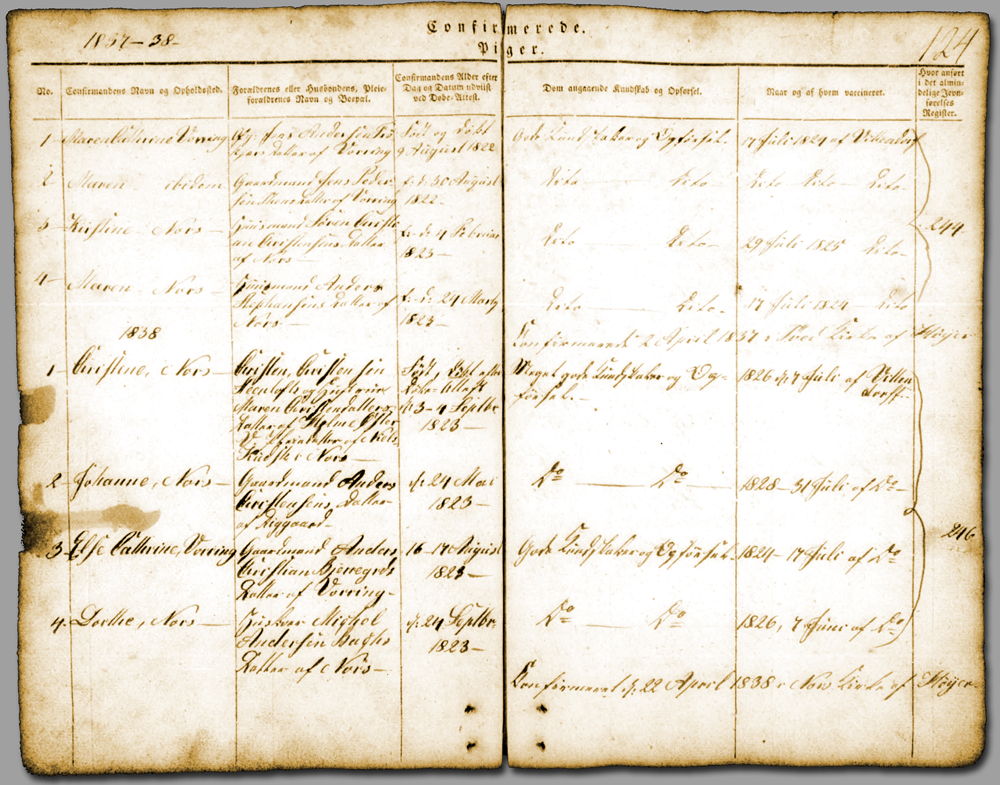 1837-38-
Confirmerede.
Piger.
124
No.
Confirmandens Navn og Opholdssted.
Forældrenes eller Husbondens, Pleie-
forældrenes Navn og Boepæl.
Confirmandens Alder efter
Dag og Datum udviist
ved Døbe-Attest.
Dom angaaende Kundskab og Opførsel.
Naar og af hvem vaccineret.
Hvor anført
i det almin-
delige Jevn-
førelses
Register.
1 Maren Cathrine Vorring
Datter af Vorring
Født og Døbt
9 August 1822
Gode Kundskaber og Opførsel.
17 Juli 1824 af
2 Maren ibidem
Gaardmand Jens Peder
Datter af Vorring
f. d. 30 August
1822-
Dito Dito
Dito Dito Dito
3 Kirstine Nors
Huusmand Søren Christi-
an Christensens Datter
af Nors
f. d. 4 Februar
1823-
Dito Dito
29 Juli 1825 Dito
244
4- Maren Nors
Huusmand Anders
Stephansens Datter af
Nors
f. d. 24 Marts
1823-
Dito Dito
17 Juli 1824 Dito
Confirmerede 2 April 1837 i Nors Kirke af Høyer
1838
1- Christene, Nors
Christen Christensen
Maren Christensdatters
Datter af
Nors
Født, Døbt efter
Døbe-Attest
3-4 Septbr.
1823-
Meget gode Kundskaber og Op-
førsel.
1826 d. 7 Juli af Vitten
dorff.
2- Johanne, Nors
Gaardmand Anders
Christensens Datter
af Diggaard
d. 24 Mai
1823-
Do Do
1828-31 Juli af Do
3- Else Cathrine, Vorring
Gaardmand Anders
Christian Bjerregrds
Datter af Vorring
16-17 August
1823-
Gode Kundskaber og Opførsel.
1824-17 Juli af Do
246
4. Dorthe, Nors
Michel
Andersen
Datter af Nors
d. 24 Septbr.
1823-
Do Do
1826, 7 af Do
Confirmeret d. 22 April 1838 i Nors Kirke af Høyer